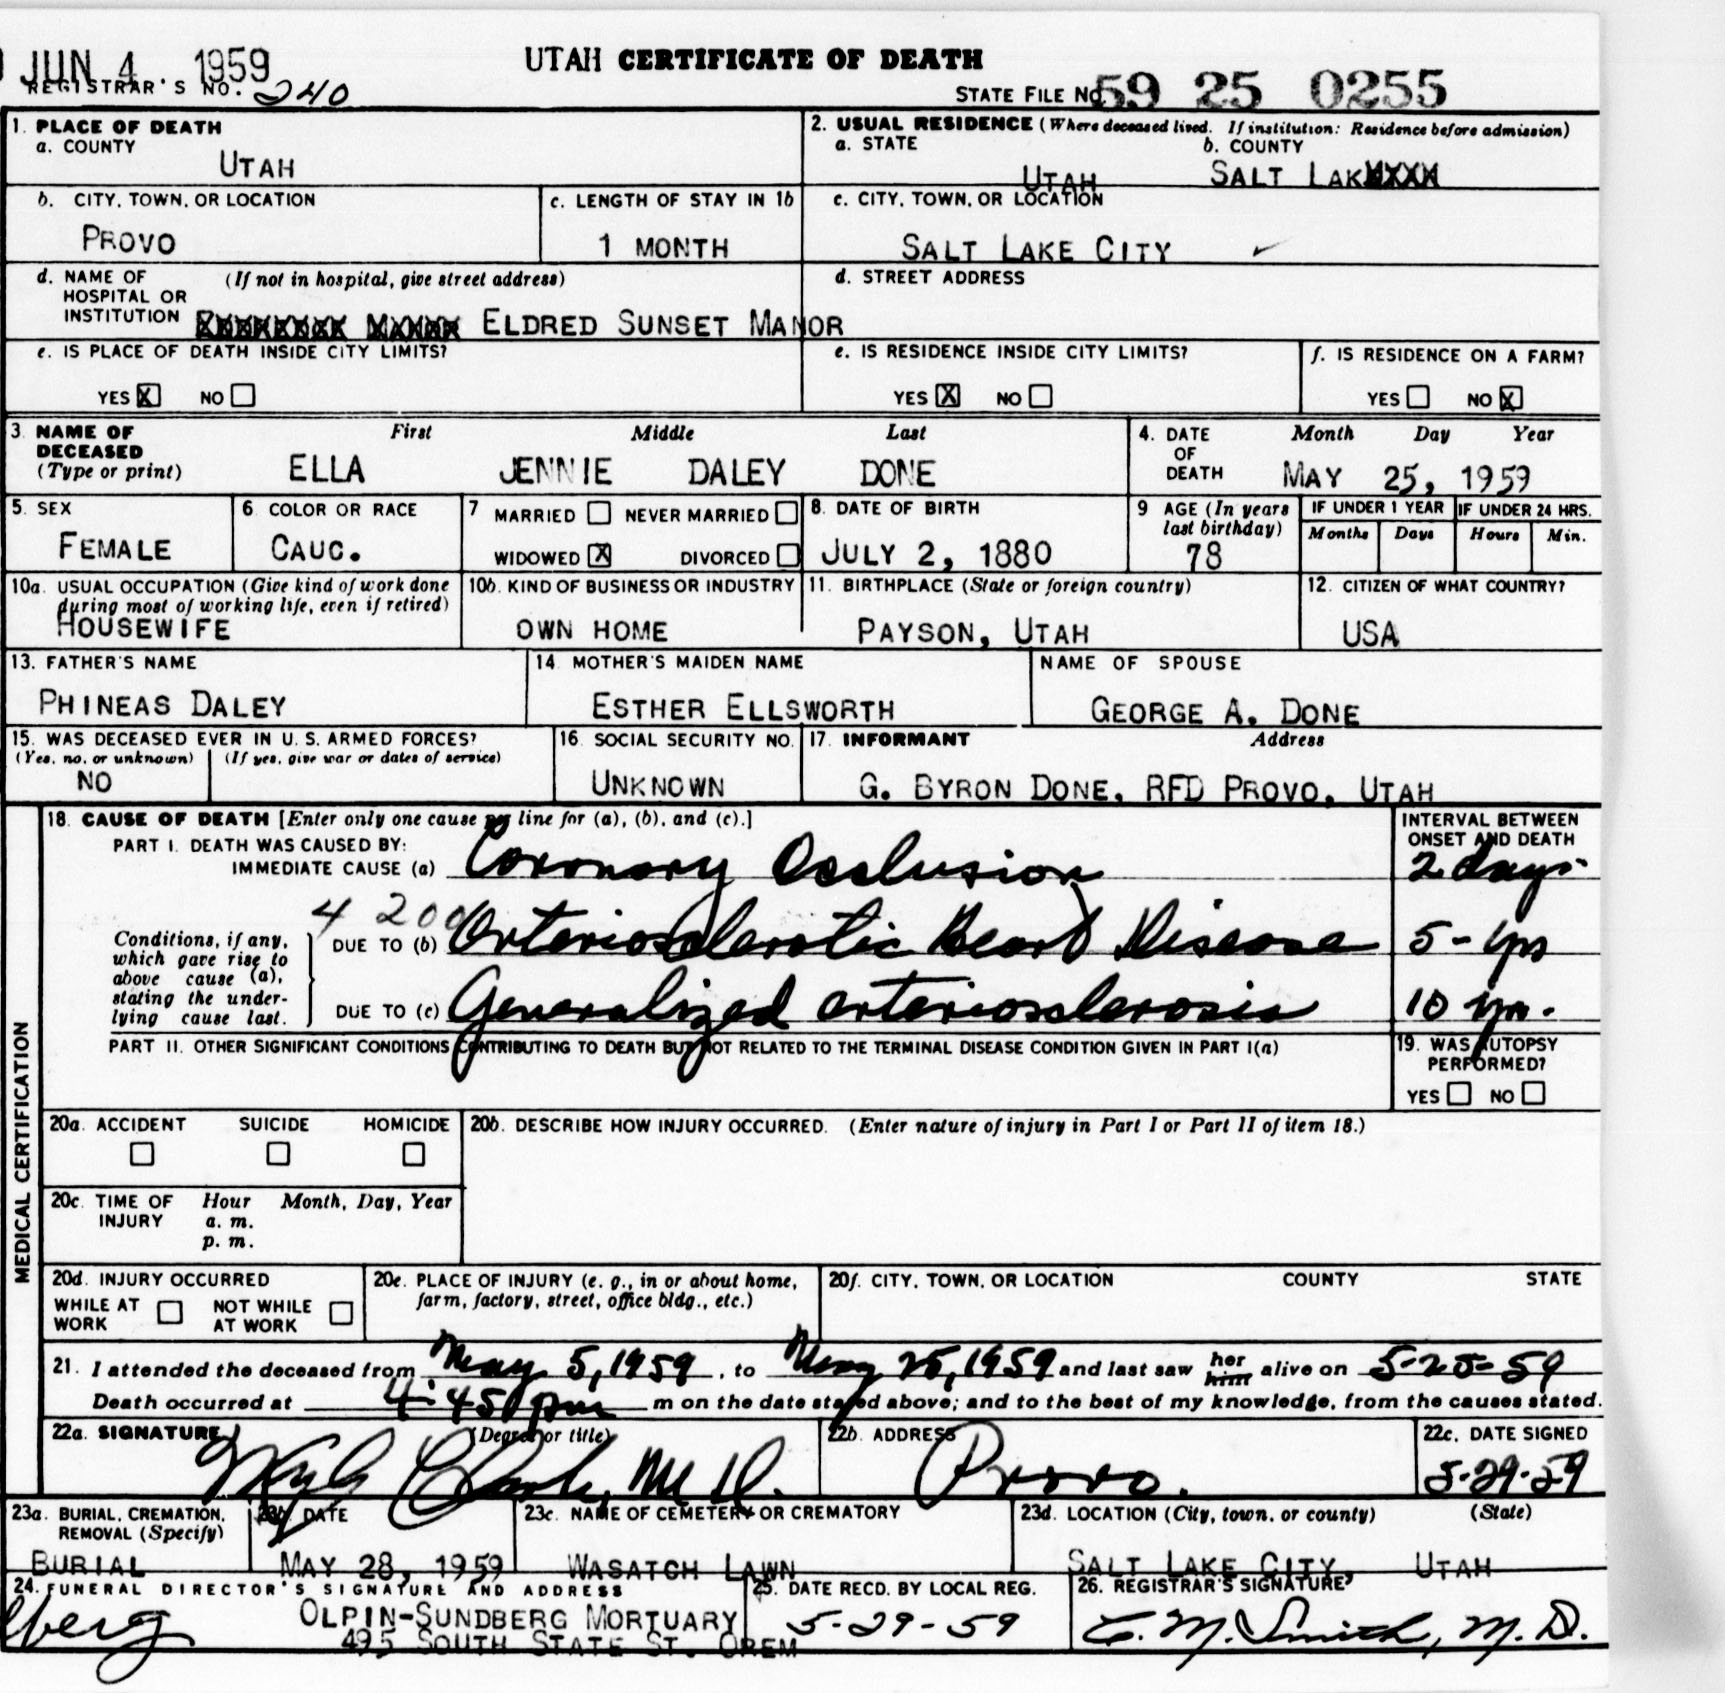 JUN 4 1959
UTAH CERTIFICATE OF DEATH
REGISTRAR'S NO. 240
STATE FILE NO. 59 25 0255
1. PLACE OF DEATH
a. COUNTY
UTAH
2. USUAL RESIDENCE (Where deceased lived. If institution: Residence before admission)
a. STATE b. COUNTY
UTAH SALT LAK
b. CITY, TOWN, OR LOCATION
PROVO
c. LENGTH OF STAY IN 1b
1 MONTH
c. CITY, TOWN, OR LOCATION
SALT LAKE CITY
d. NAME OF (If not in hospital, give street address)
HOSPITAL OR
INSTITUTION ELDRED SUNSET MANOR
d. STREET ADDRESS
e. IS PLACE OF DEATH INSIDE CITY LIMITS?
YES X NO
e. IS RESIDENCE INSIDE CITY LIMITS?
YES X NO
f. IS RESIDENCE ON A FARM?
YES NO X
3. NAME OF First Middle Last
DECEASED
(Type or print) ELLA JENNIE DALEY DONE
4. DATE Month Day Year
OF
DEATH MAY 25, 1959
5. SEX
FEMALE
6. COLOR OR RACE
CAUC.
7 MARRIED NEVER MARRIED
WIDOWED X DIVORCED
8. DATE OF BIRTH
JULY 2, 1880
9 AGE (In years
last birthday)
78
IF UNDER 1 YEAR IF UNDER 24 HRS.
Months Days Hours Min.
10a. USUAL OCCUPATION (Give kind of work done
during most of working life, even if retired)
HOUSEWIFE
10b. KIND OF BUSINESS OR INDUSTRY
OWN HOME
11. BIRTHPLACE (State or foreign country)
PAYSON, UTAH
12. CITIZEN OF WHAT COUNTRY?
USA
13. FATHER'S NAME
PHINEAS DALEY
14. MOTHER'S MAIDEN NAME
ESTHER ELLSWORTH
NAME OF SPOUSE
GEORGE A. DONE
15. WAS DECEASED EVER IN U.S. ARMED FORCES?
(Yes, no, or unknown) (If yes, give war or dates of service)
NO
16. SOCIAL SECURITY NO.
UNKNOWN
17. INFORMANT Address
G. BYRON DONE, RFD PROVO, UTAH
MEDICAL CERTIFICATION
18. CAUSE OF DEATH [Enter only one cause per line for (a), (b), and (c).]
INTERVAL BETWEEN
ONSET AND DEATH
PART I. DEATH WAS CAUSED BY:
IMMEDIATE CAUSE (a) Coronary Occlusion 2 days
4 200
Conditions, if any,
which gave rise to
above cause (a),
stating the under-
lying cause last.
DUE TO (b) Arteriosclerotic Heart Disease 5- yrs
DUE TO (c) Generalized arteriosclerosis 10 yrs.
PART II. OTHER SIGNIFICANT CONDITIONS CONTRIBUTING TO DEATH BUT NOT RELATED TO THE TERMINAL DISEASE CONDITION GIVEN IN PART I(a)
19. WAS AUTOPSY
PERFORMED?
YES NO
20a. ACCIDENT SUICIDE HOMICIDE
20b. DESCRIBE HOW INJURY OCCURRED. (Enter nature of injury in Part I or Part II of item 18.)
20c. TIME OF Hour Month, Day, Year
INJURY a. m.
p. m.
20d. INJURY OCCURRED
WHILE AT NOT WHILE
WORK AT WORK
20e. PLACE OF INJURY (e. g., in or about home,
farm, factory, street, office bldg., etc.)
20f. CITY, TOWN, OR LOCATION COUNTY STATE
21. I attended the deceased from May 5, 1959, to May 25, 1959 and last saw her him alive on 5-25-59
Death occurred at 4:45 pm m on the date stated above; and to the best of my knowledge, from the causes stated.
22a. SIGNATURE (Degree or title)
Clark, M.D.
22b. ADDRESS
Provo.
22c. DATE SIGNED
5-29-59
23a. BURIAL, CREMATION,
REMOVAL (Specify)
BURIAL
23b. DATE
MAY 28, 1959
23c. NAME OF CEMETERY OR CREMATORY
WASATCH LAWN
23d. LOCATION (City, town, or county) (State)
SALT LAKE CITY, UTAH
24. FUNERAL DIRECTOR'S SIGNATURE AND ADDRESS
OLPIN-SUNDBERG MORTUARY
495 SOUTH STATE ST. OREM
25. DATE RECD. BY LOCAL REG.
5-29-59
26. REGISTRAR'S SIGNATURE
C. M. Smith, M.D.